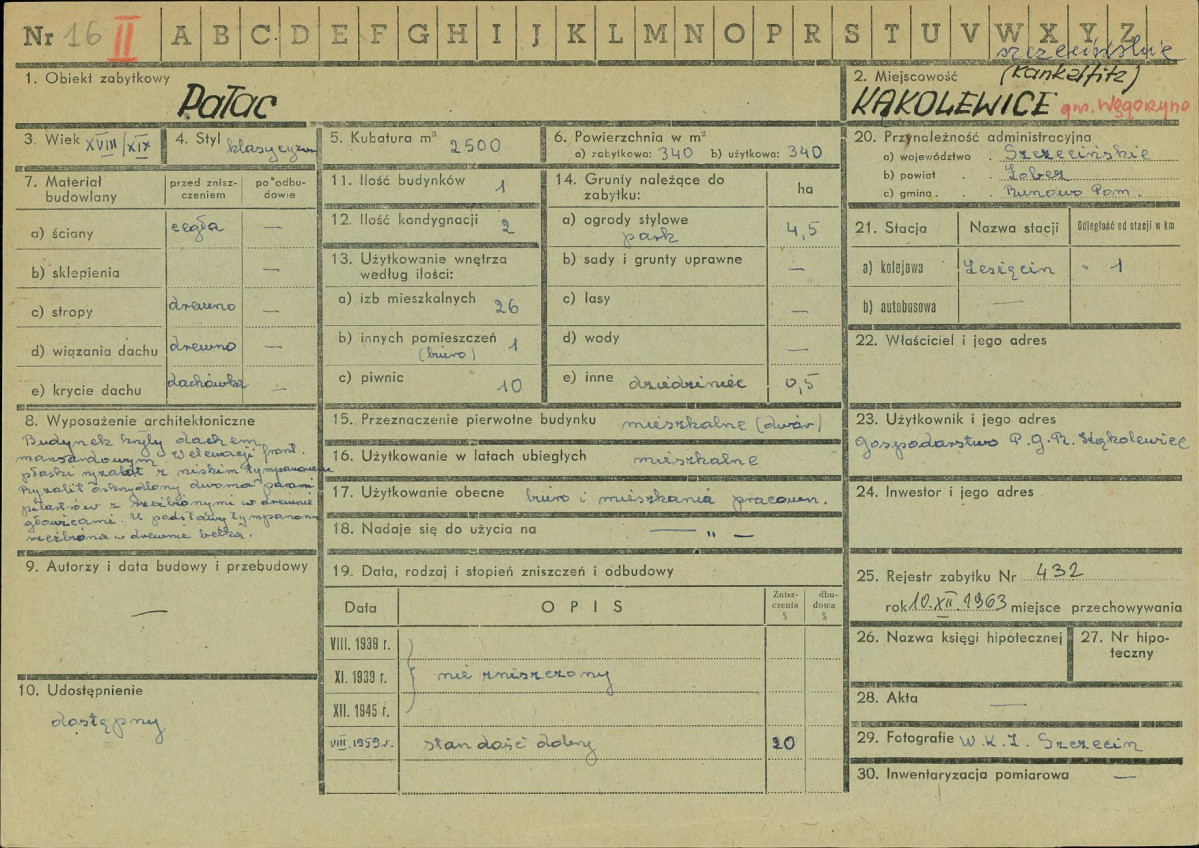 Nr 16 II A B C D E F G H I J K L M N O P R S T U V W X Y Z
szczecińskie
1. Obiekt zabytkowy
Pałac
2. Miejscowość (Kankelfitz)
KĄKOLEWICE gm. Węgorzyno
3. Wiek XVIII/XIX
4. Styl klasycyzm
5. Kubatura m³ 2500
6. Powierzchnia w m²
a) zabytkowa: 340 b) użytkowa: 340
7. Materiał budowlany
przed zniszczeniem
po odbudowie
a) ściany cegła —
b) sklepienia —
c) stropy drewno —
d) wiązania dachu drewno —
e) krycie dachu dachówka —
8. Wyposażenie architektoniczne
Budynek kryty dachem
mansardowym w elewacji front.
płaski ryzalit z niskim tympanonem
Ryzalit oskrzydlony dwoma parami
pilastrów z rzeźbionymi w drewnie
głowicami. U podstawy tympanonu
rzeźbiona w drewnie belka.
9. Autorzy i data budowy i przebudowy
—
10. Udostępnienie
dostępny
11. Ilość budynków 1
12. Ilość kondygnacji 2
13. Użytkowanie wnętrza
według ilości:
a) izb mieszkalnych 26
b) innych pomieszczeń 1
(biuro)
c) piwnic 10
14. Grunty należące do
zabytku: ha
a) ogrody stylowe
park 4,5
b) sady i grunty uprawne —
c) lasy —
d) wody —
e) inne dziedziniec 0,5
15. Przeznaczenie pierwotne budynku mieszkalne (dwór)
16. Użytkowanie w latach ubiegłych mieszkalne
17. Użytkowanie obecne biuro i mieszkania pracown.
18. Nadaje się do użycia na — „ —
19. Data, rodzaj i stopień zniszczeń i odbudowy
Data OPIS Zniszczenia % dbudowa %
VIII. 1939 r.
XI. 1939 r. nie zniszczony
XII. 1945 r.
VIII. 1959 r. stan dość dobry 20
20. Przynależność administracyjna
a) województwo . Szczecińskie
b) powiat . . Łobez
c) gmina . . Runowo Pom.
21. Stacja Nazwa stacji Odległość od stacji w km
a) kolejowa Lesięcin 1
b) autobusowa —
22. Właściciel i jego adres
23. Użytkownik i jego adres
gospodarstwo P.G.R. Kąkolewice
24. Inwestor i jego adres
25. Rejestr zabytku Nr 432
rok 10.XII.1963 miejsce przechowywania
26. Nazwa księgi hipotecznej
27. Nr hipoteczny
28. Akta —
29. Fotografie W.K.Z. Szczecin
30. Inwentaryzacja pomiarowa —